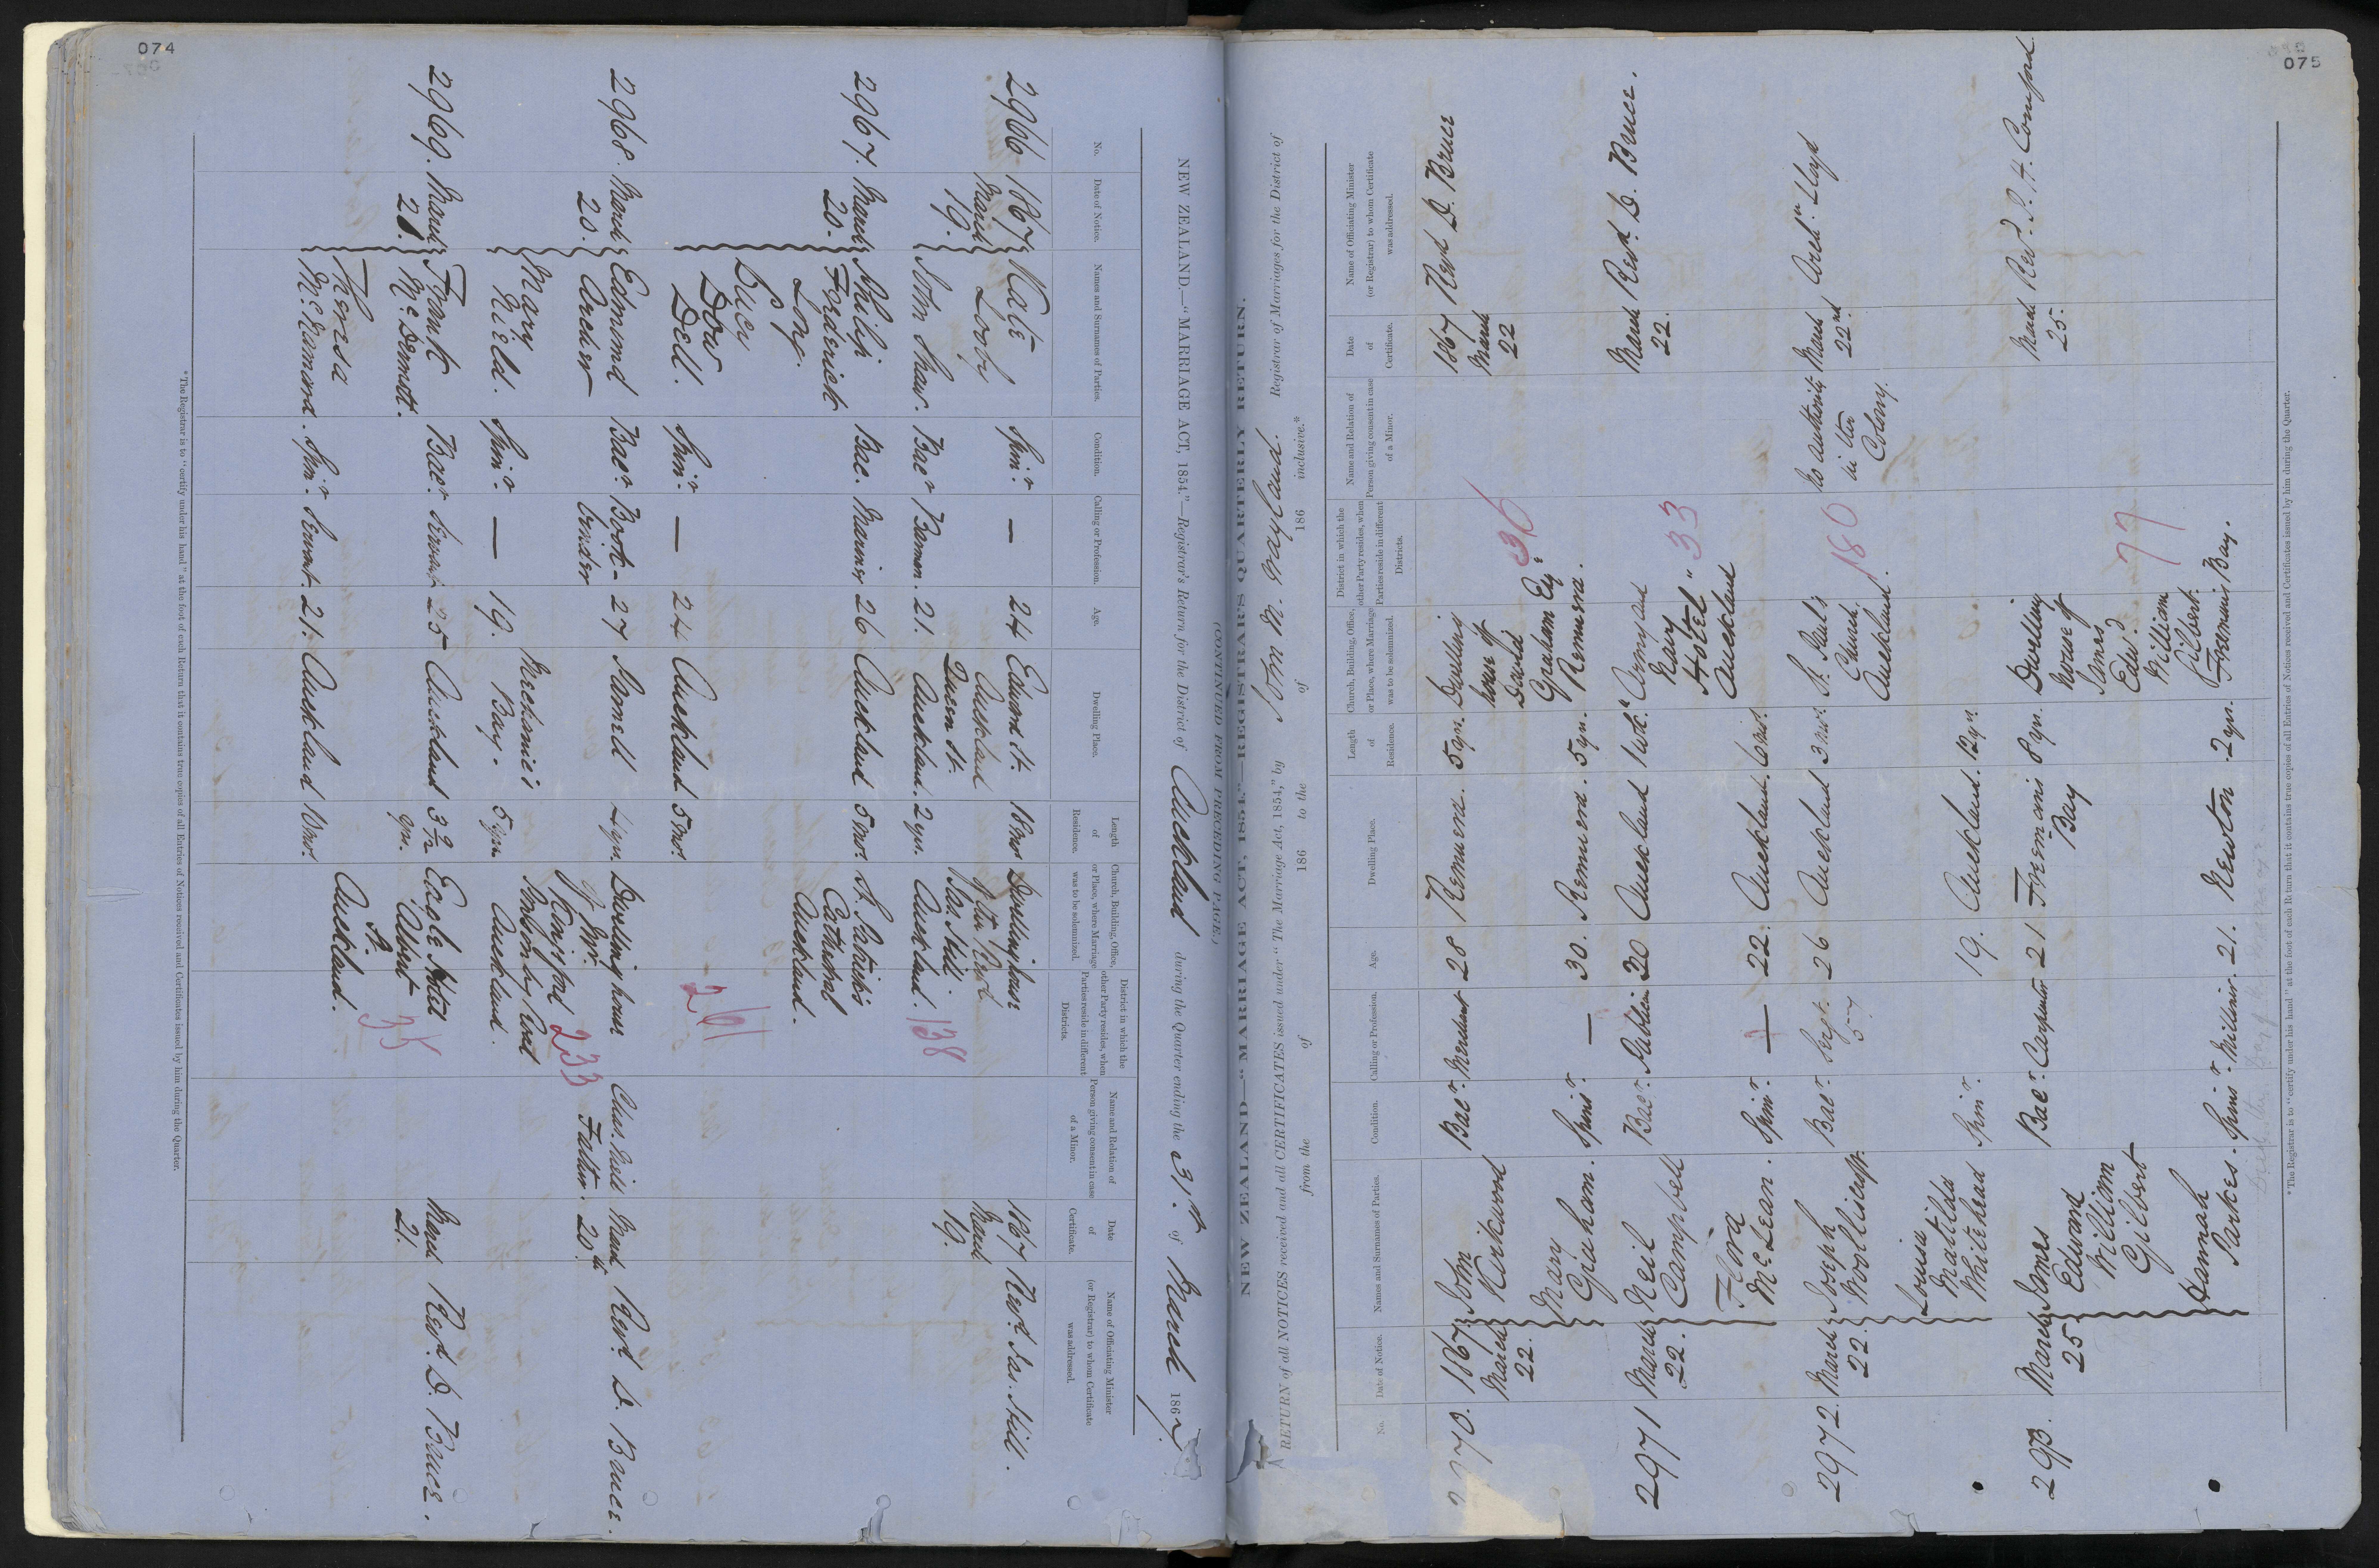 074
NEW ZEALAND.—"MARRIAGE ACT, 1854."—Registrar's Return for the District of Auckland during the Quarter ending the 31st. of March 1867
No.
Date of Notice.
Names and Surnames of Parties.
Condition.
Calling or Profession.
Age.
Dwelling Place.
Length of Residence.
Church, Building, Office, or Place, where Marriage was to be solemnized.
District in which the other Party resides, when Parties reside in different Districts.
Name and Relation of Person giving consent in case of a Minor.
Date of Certificate.
Name of Officiating Minister (or Registrar) to whom Certificate was addressed.
2966 1867 March 19. Kate Looby Spin.r — 24 Edward St. Auckland 18 mos Dwelling house of the Revd. Jas. Hill Auckland. 138 1867 March 19. Revd. Jas. Hill.
John Shaw. Bacr Barman. 21. Queen St. Auckland. 2 yrs.
2967. March 20. Philip Forderich Long. Bac. Mariner 26 Auckland 5 mos. St. Patrick's Cathedral Auckland. 261
Lucy Dow Dell. Spin.r — 24 Auckland 5 mos.
2968. March 20. Edmund Archer Bacr Book-binder 27 Parnell 4 yrs. Dwelling house of Mr. Kingsford Auckland. 233 Chas. Nield Father. March 20th Revd. D. Bruce.
Mary Nield. Spin.r — 19. Mechanic's Bay. 5 yrs
2969. March 21. Frank McDermott. Bacr. Servant 25 Auckland 3 9/12 yrs. Eagle Hotel Albert St. Auckland. 35 March 21. Revd. D. Bruce.
Theresa McNamara. Spin.r Servant. 21. Auckland 10 mos.
*The Registrar is to "certify under his hand" at the foot of each Return that it contains true copies of all Entries of Notices received and Certificates issued by him during the Quarter.
075
(CONTINUED FROM PRECEDING PAGE.)
NEW ZEALAND—"MARRIAGE ACT, 1854."—REGISTRAR'S QUARTERLY RETURN.
RETURN of all NOTICES received and all CERTIFICATES issued under "The Marriage Act, 1854," by John M. Wayland. Registrar of Marriages for the District of
from the of 186 to the of 186 inclusive.*
No.
Date of Notice.
Names and Surnames of Parties.
Condition.
Calling or Profession.
Age.
Dwelling Place.
Length of Residence.
Church, Building, Office, or Place, where Marriage was to be solemnized.
District in which the other Party resides, when Parties reside in different Districts.
Name and Relation of Person giving consent in case of a Minor.
Date of Certificate.
Name of Officiating Minister (or Registrar) to whom Certificate was addressed.
2970. 1867 March 22. John Kirkwood Bacr. Merchant 28 Remuera. 5 yrs. Dwelling house of David Graham Esq. Remuera. 36 1867 March 22 Revd D. Bruce
Mary Graham. Spinr. — 30. Remuera. 5 yrs.
2971 March 22. Neil Campbell Bacr. Publican 30 Auckland 1 wk. "Army and Navy Hotel" Auckland 33 March 22. Revd. D. Bruce.
Flora McLean. Spinr. — 22. Auckland. 6 mos.
2972. March 22. Joseph Bacr. Sergt. 57 26 Auckland 3 mos. St. Paul's Church, Auckland. 180 No authority in the Colony. March 22nd Archn. Lloyd
Louisa Matilda Whitehead Spinr. 19. Auckland. 12 yrs.
2973. March 25 James Edward William Gilbert Bacr. Carpenter 21 Freeman's Bay 8 yrs. Dwelling house of James Edwd. William Gilbert. Freeman's Bay. 77 March 25. Revd. P. H. Cornford
Hannah Parkes. Spinr. Milliner. 21. Newton 2 yrs.
*The Registrar is to "certify under his hand" at the foot of each Return that it contains true copies of all Entries of Notices received and Certificates issued by him during the Quarter.